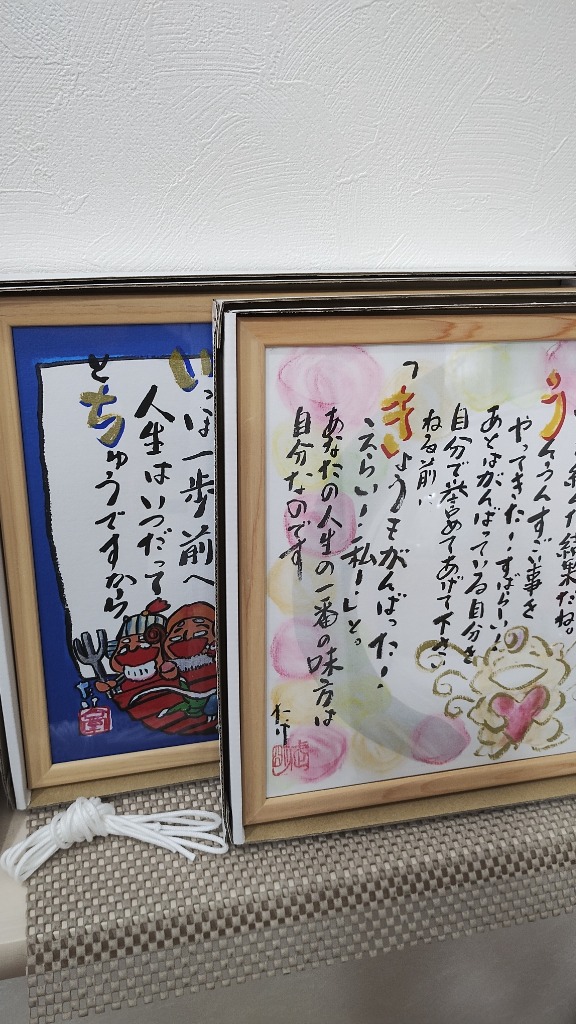 いっぽ一歩前へ
人生はいつだって
とちゅうですから
んだ結果だね。
すごい事を
やってきた!すばらしい!
あとはがんばっている自分を
自分で誉めてあげて下さい
ねる前に
「きょうもがんばった!
えらい!私!」と。
あなたの人生の一番の味方は
自分なのです